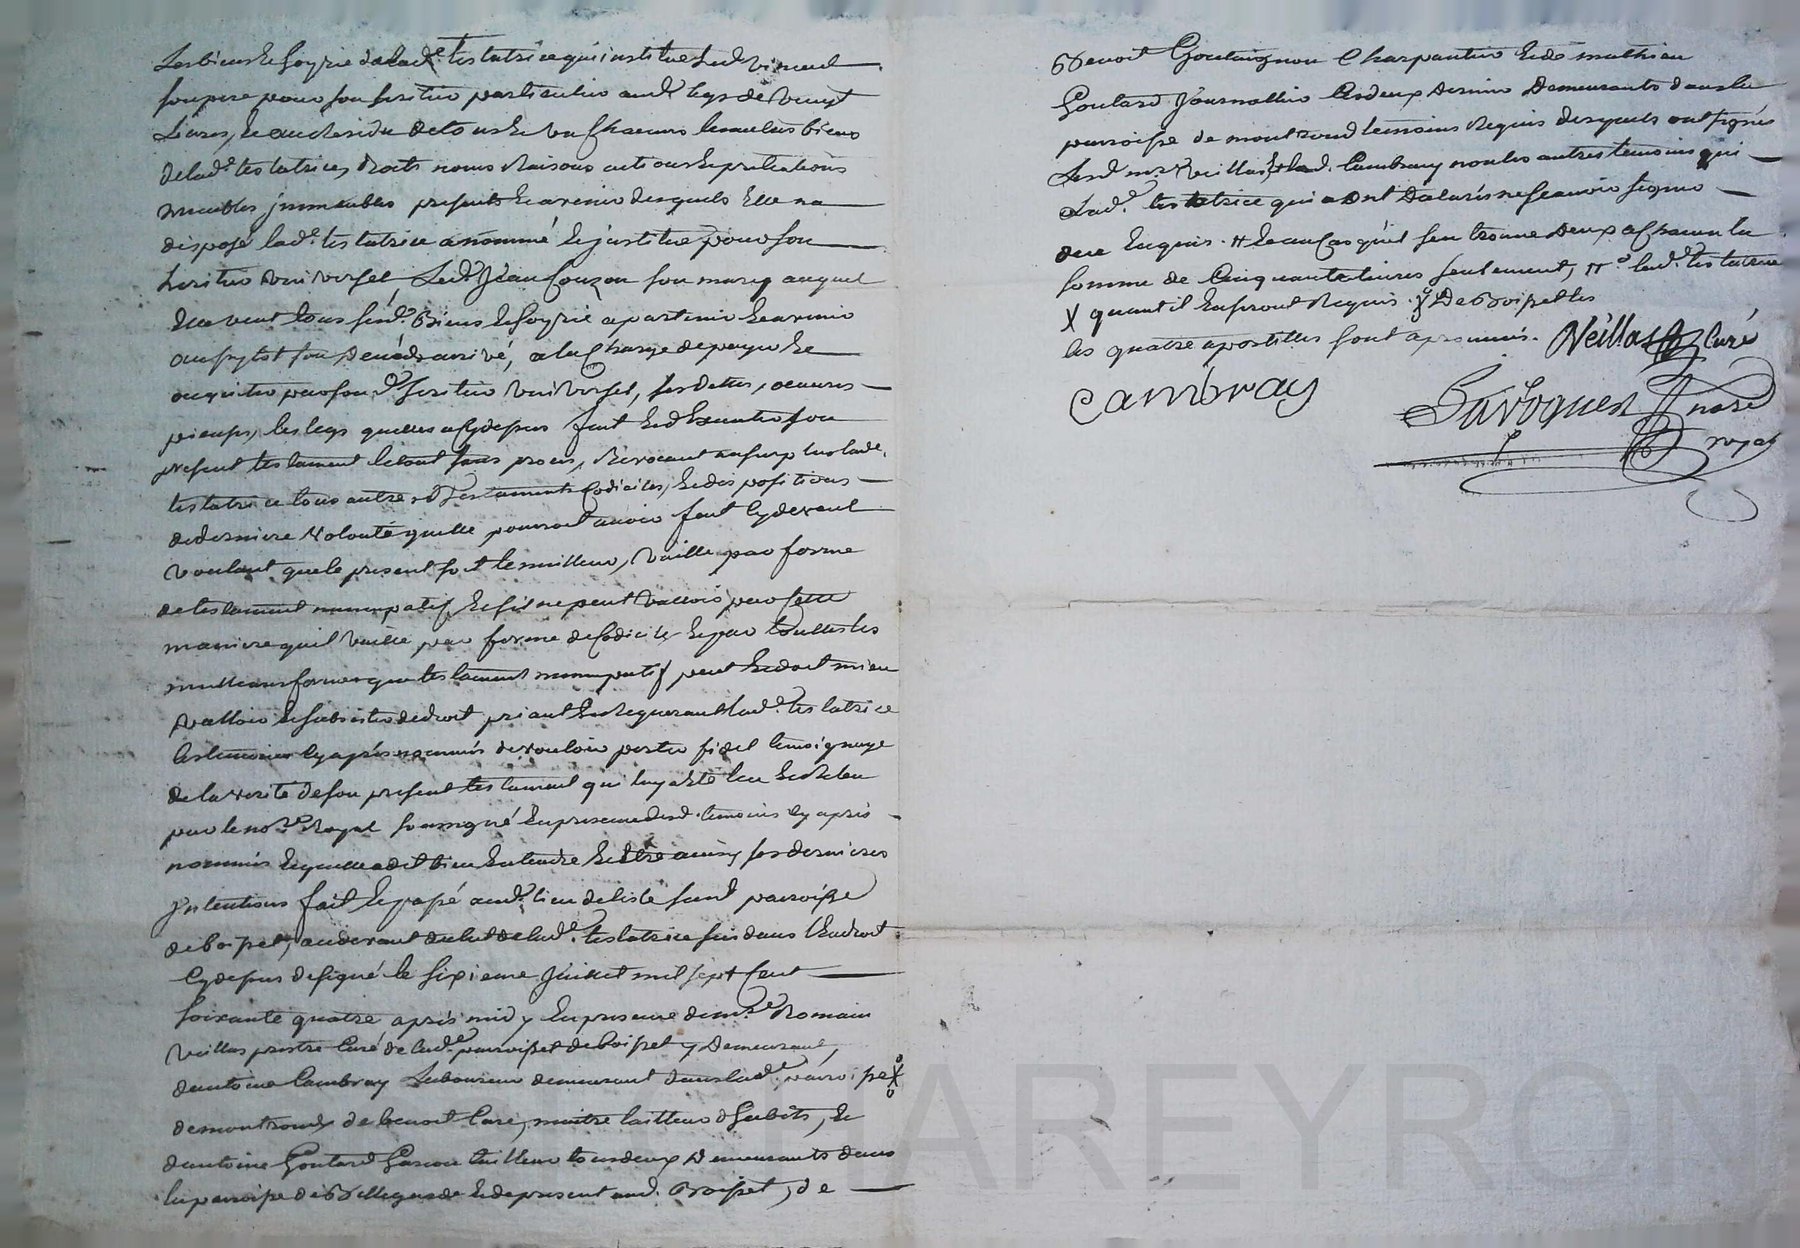 Les biens & hoyrie de lad.e testatrice qui institue led. Vincent
son pere pour son heritier particulier aud. legs de vingt
Livres, & au residu de tous & un chacuns les autres biens
de lad.e testatrice, droits noms Raisons actions & pretentions
meubles jmmeubles presents & avenir desquels Elle na
disposé lad.e testatrice a nommé & justitue pour son
heritier universel, led. Jean Couzon son mary auquel
Elle veut tous sesd. Biens & hoyrie apartenir & avenir
aussytot son deceds arrivé, a la Charge de payer &
acquitter par son d. heritier universel, ses dettes, oeuvres
pieuses, les legs quelle a Cy depus fait & dexecuter son
present testament le tout sans proces, Revocant au surplus lade.
testatrice tous autres testaments Codiciles, & dispositions
de derniere Volonté quelle pourroit avoir fait Cy devant
voulant que le present soit le meilleur, vaille par forme
de testament nuncupatif, & sil ne peut valloir par cette
maniere quil vaille par forme de Codicile & par touttes les
meilleures formes que testament nuncupatif peut & doit mieux
valloir & subsister de droit priant & Requerant lad.e testatrice
les temoins Cy après nommés de vouloir porter fidel temoignage
de la verité de son present testament qui luy a Eté leu & Releu
par le no.re Royal soussigné En presence desd. temoins Cy après
nommés & quelle a dit bien Entendre & Etre ainsy ses dernieres
Jntentions fait & passé aud. lieu de liste sunt parroisse
de boisset, au devant du lit de lad.e testatrice sis dans lEndroit
Cy depus designé le sixieme Juillet mil sept Cent
soixante quatre après midy En presence de m.re Romain
Veillas prestre Curé de lad.e parroisse de boisset y Demeurant,
dantoine Cambray Laboureur demeurant dans lad.e parroisse X
de montrond, de benoit Care, maitre tailleur dhabits, &
dantoine Goutard Garcon tailleur tous deux Demeurants dans
la parroisse de Bellegarde & de present aud. Boisset, de
Benoit Goutaignon Charpentier & de mathieu
Goutard Journallier les deux Derniers Demeurants dans la
parroisse de montrond temoins Requis desquels ont signés
Lesd. m.re Veillas & led. Cambray non les autres temoins qui
Lad.e testatrice qui a dont Declarés ne scavoir signer
de ce Enquis. # & au Cas quil sen trouve Deux a Chacun la
somme de Cinquante livres seulement, #o lad. testatrice
X quant il En seront Requis. De Boisset les
les quatre apostilles sont aprouvés. Veillas Curé
Cambray
Pavoques no.re
royal
CHAREYRON